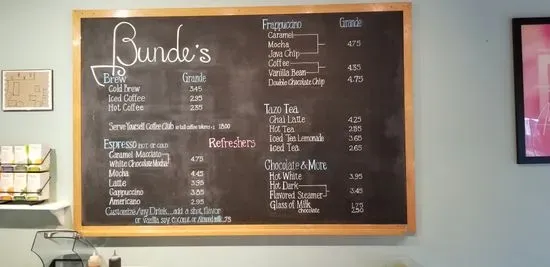 Bunde's
Brew Grande
Cold Brew 3.45
Iced Coffee 2.95
Hot Coffee 2.35
Serve Yourself Coffee Club 10 tall coffee tokens +1 18.00
Espresso (HOT OR COLD)
Caramel Macciato
White Chocolate Mocha 4.75
Mocha 4.45
Latte 3.95
Cappuccino 3.85
Americano 2.95
Customize my Drink....add a shot, flavor
or vanilla soy, coconut or Almond milk .75
Refreshers
Frappuccino Grande
Caramel
Mocha 4.75
Java Chip
Coffee
Vanilla Bean 4.35
Double Chocolate Chip 4.75
Tazo Tea
Chai Latte 4.25
Hot Tea 2.85
Iced Tea Lemonade 3.65
Iced Tea 2.65
Chocolate & More
Hot White 3.95
Hot Dark
Flavored Steamer 3.45
Glass of Milk 1.75
chocolate 2.50